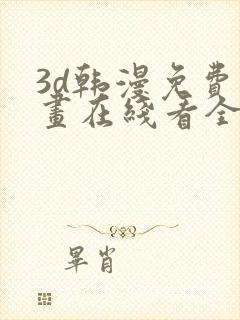 3d韩漫免费
畫在綫看全
畢肖